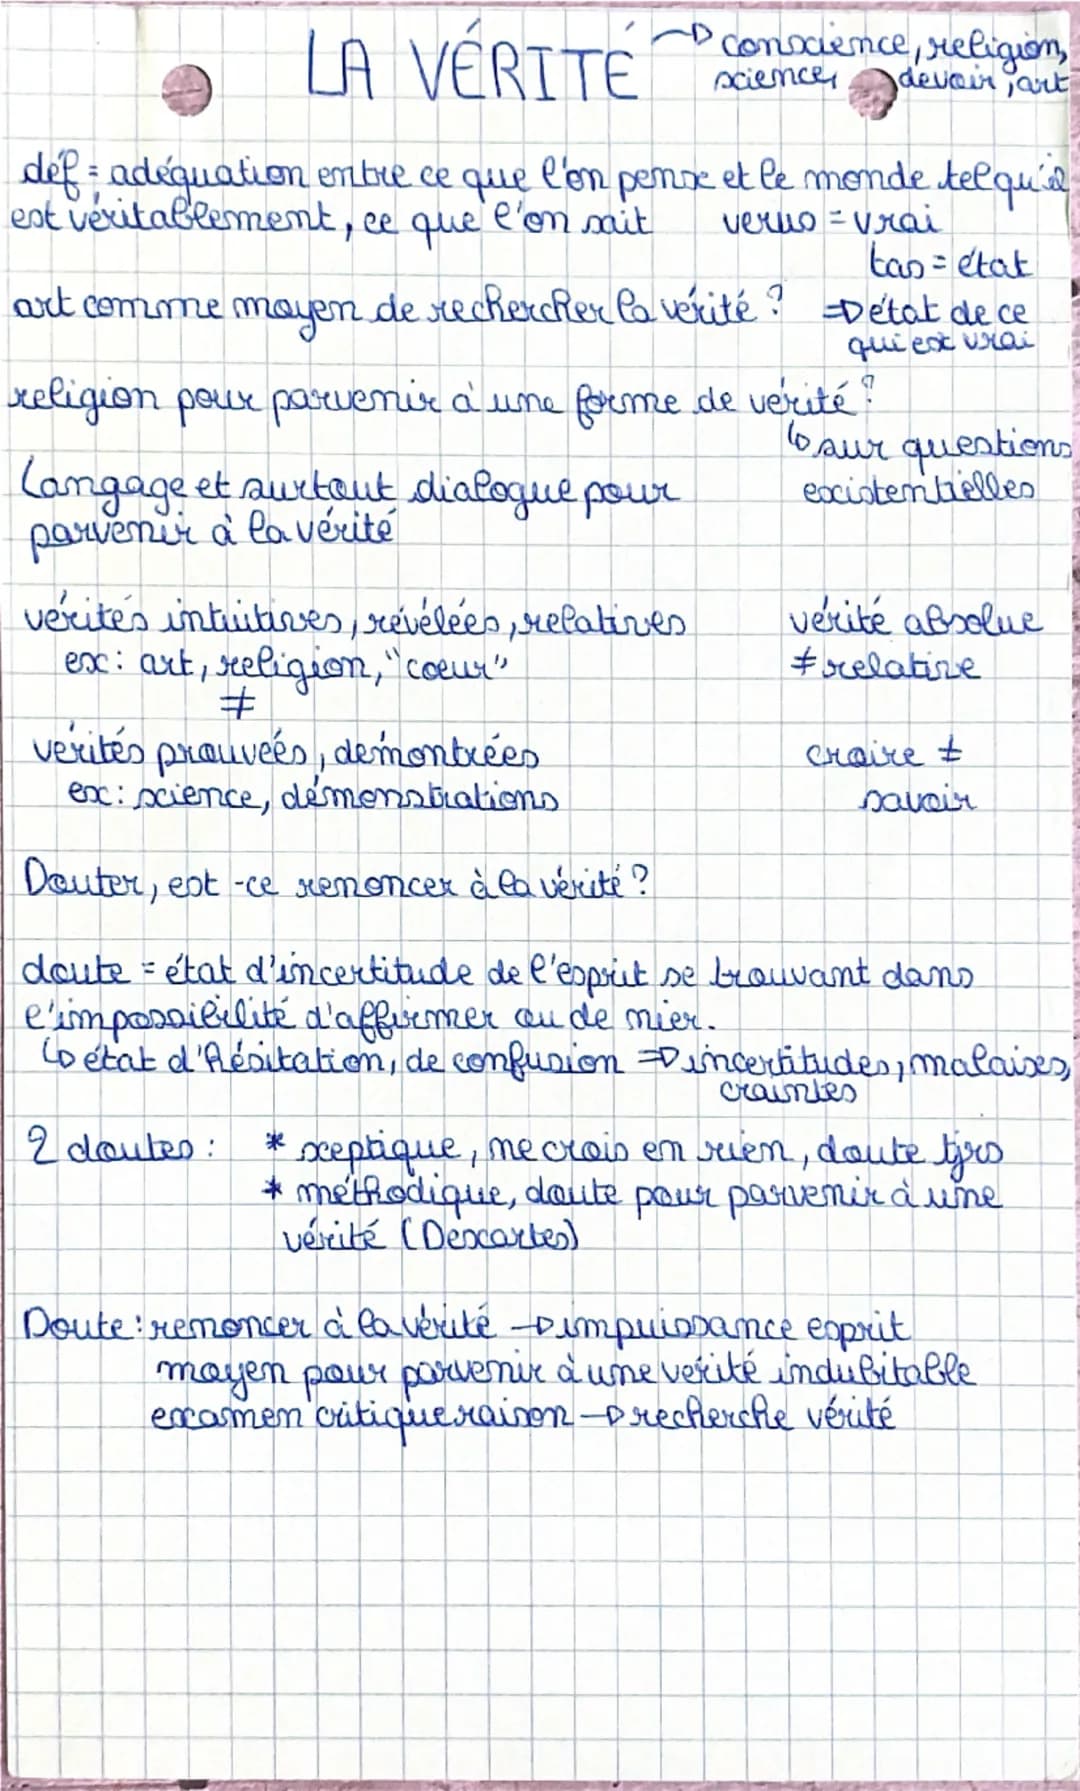 LA VÉRITÉ → conscience, religion,
science, devoir, art
déf = adéquation entre ce que l'on pense et le monde tel qu'il
est véritablement, ce que l'on sait verus = vrai
tas = état
art comme moyen de rechercher la vérité ? ⇒ état de ce
qui est vrai
religion pour parvenir à une forme de vérité ?
↳ sur questions
existentielles
Langage et surtout dialogue pour
parvenir à la vérité
vérités intuitives, révélées, relatives vérité absolue
ex : art, religion, "coeur" ≠ relative
≠
vérités prouvées, démontrées croire ≠
ex : science, démonstrations savoir
Douter, est-ce renoncer à la vérité ?
doute = état d'incertitude de l'esprit se trouvant dans
l'impossibilité d'affirmer ou de nier.
↳ état d'hésitation, de confusion ⇒ incertitudes, malaises,
craintes
2 doutes : * sceptique, ne crois en rien, doute tjrs
* méthodique, doute pour parvenir à une
vérité (Descartes)
Doute : renoncer à la vérité → impuissance esprit
moyen pour parvenir à une vérité indubitable
examen critique raison → recherche vérité